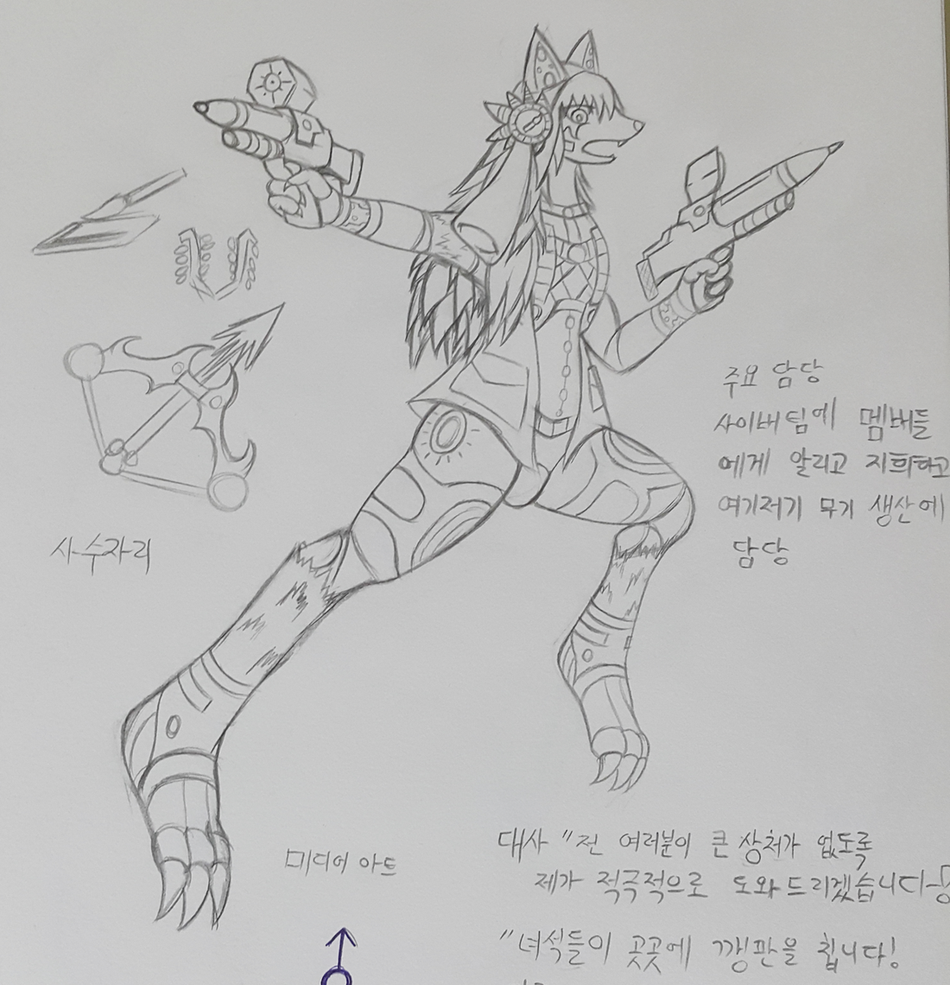 주요 담당
사이버팀에 멤버들
에게 알리고 지휘하고
여기저기 무기 생산에
담당
사수자리
미디어 아트
대사 "전 여러분이 큰 상처가 없도록
제가 적극적으로 도와드리겠습니다
"녀석들이 곳곳에 깽판을 칩니다!